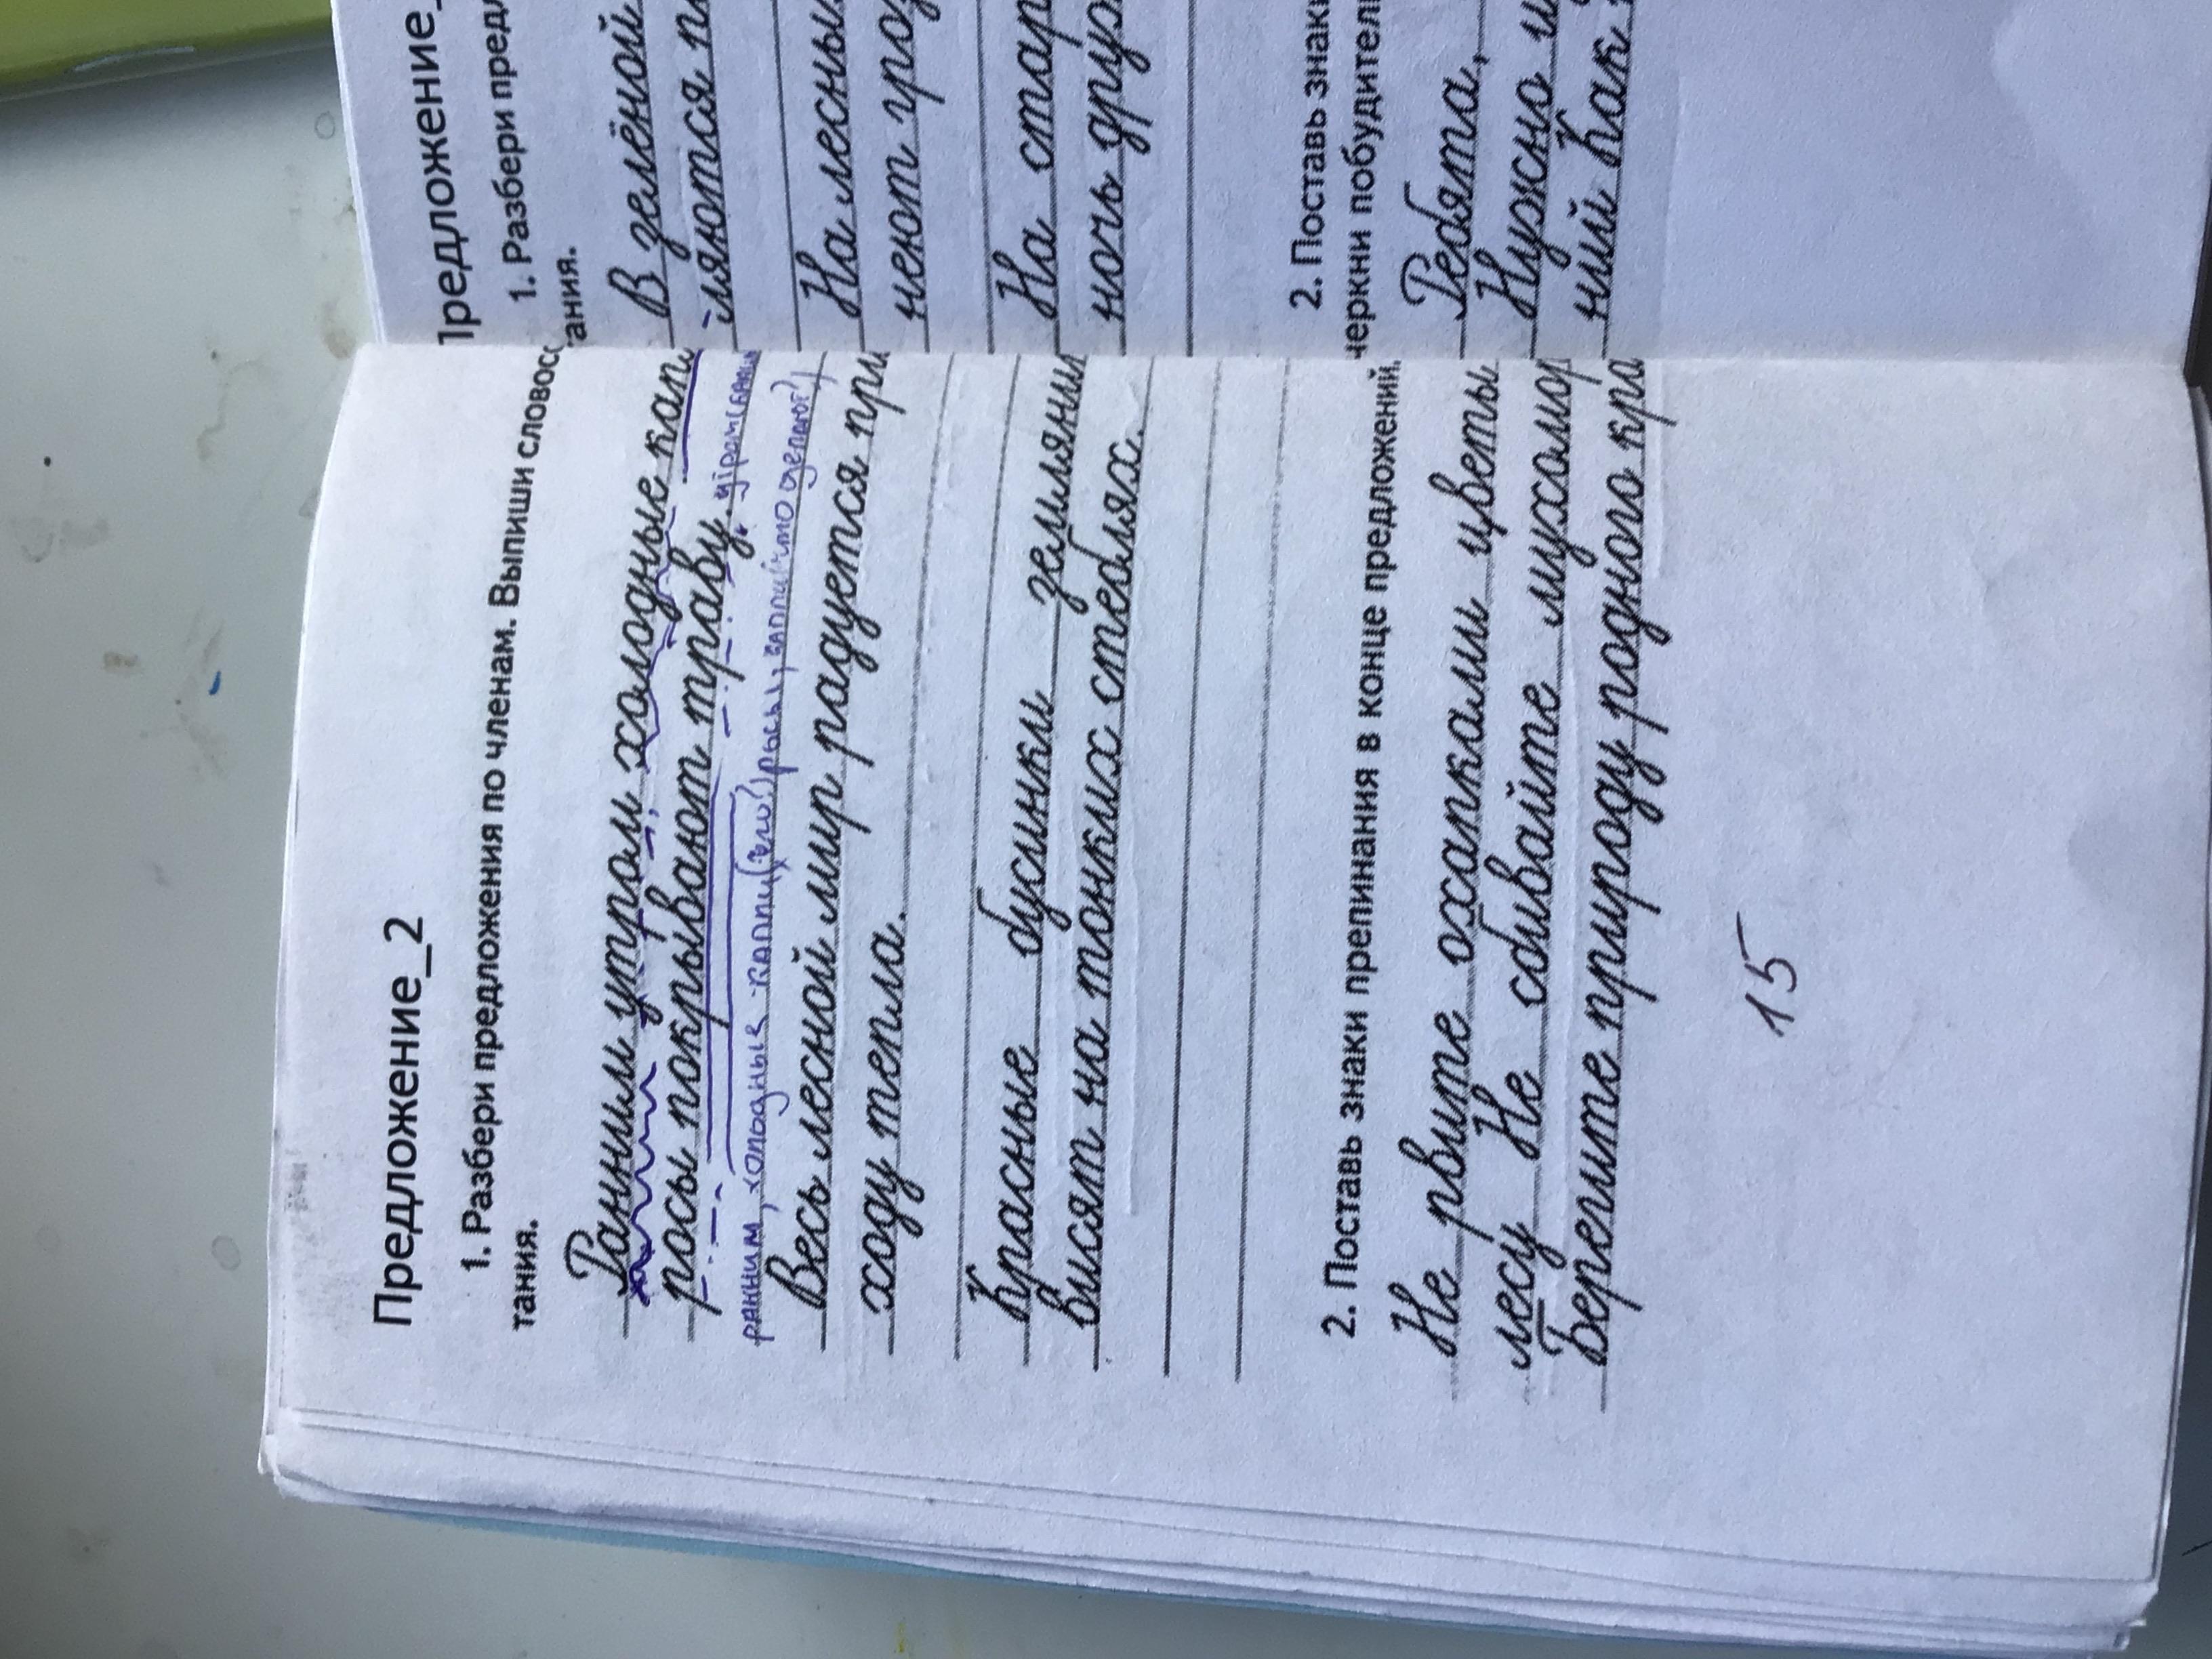 Предложение_2
1. Разбери предложения по членам. Выпиши словосо
тания.
Ранним утром холодные кап
росы покрывают траву.
ранним, холодные капли
Весь лесной мир радуется при
ходу тепла.
Красные бусинки земляни
висят на тонких стеблях.
2. Поставь знаки препинания в конце предложений,
Не рвите охапками цветы
лесу Не сбивайте мухомор
Берегите природу родного кра
15
Предложение_
1. Разбери пред
ания.
В зелёной
ляются п
На лесны
неют гроз
На стар
ночь друж
2. Поставь знаки
черкни побудител
Ребята,
Нужно и
ний Как